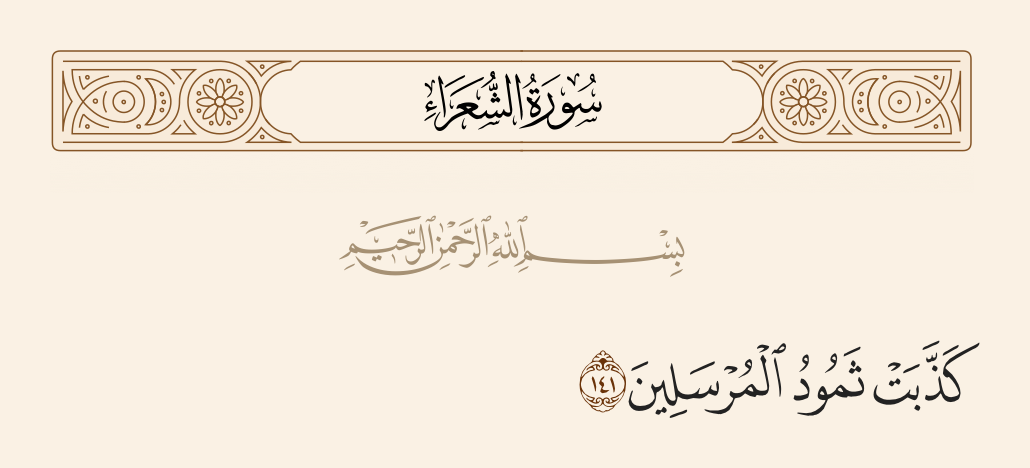 سُورَةُ الشُّعَرَاءِ
بِسْمِ ٱللَّهِ ٱلرَّحْمَٰنِ ٱلرَّحِيمِ
كَذَّبَتْ ثَمُودُ ٱلْمُرْسَلِينَ ١٤١